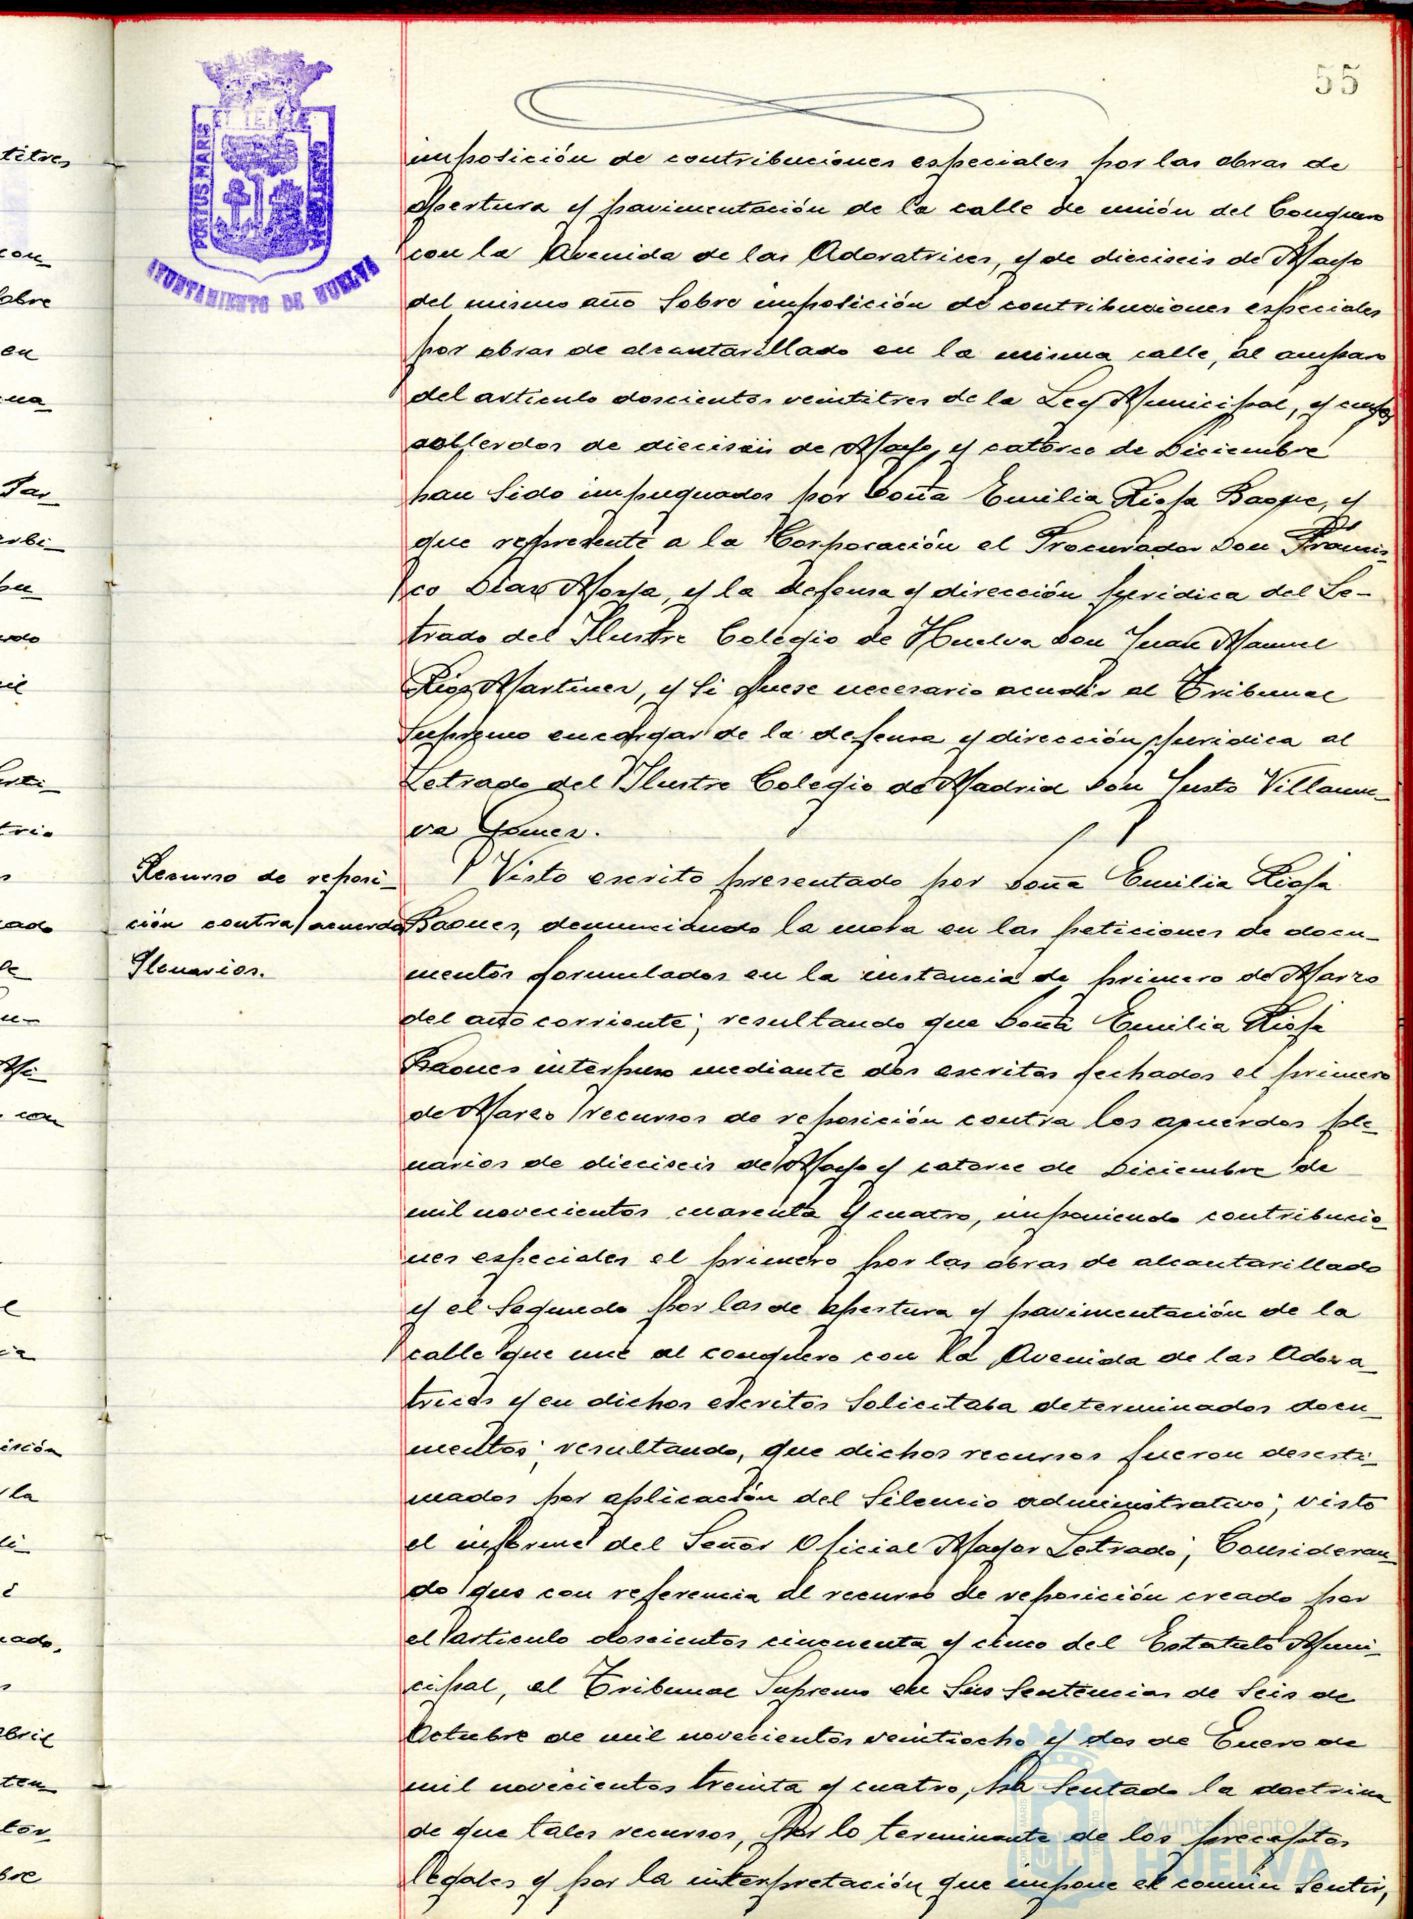 55
PORTUS MARIS
ET TERRAE
CUSTODIA
AYUNTAMIENTO DE HUELVA
imposición de contribuciones especiales por las obras de
apertura y pavimentación de la calle de unión del Conquero
con la Avenida de las Adoratrices, y de dieciseis de Mayo
del mismo año sobre imposición de contribuciones especiales
por obras de alcantarillado en la misma calle, al amparo
del articulo doscientos veintitres de la Ley Municipal, y cuyos
acuerdos de dieciseis de Mayo y catorce de Diciembre
han sido impugnados por Doña Emilia Rioja Baque, y
que represente a la Corporación el Procurador Don Francis-
co Diaz Moya, y la defensa y dirección juridica del Le-
trado del Ilustre Colegio de Huelva Don Juan Manuel
Rioja Martinez, y si fuese necesario acudir al Tribunal
Supremo encargar de la defensa y dirección juridica al
Letrado del Ilustre Colegio de Madrid Don Justo Villanue-
va Gomez.
Recurso de reposi-
ción contra acuerdos
Plenarios.
Visto escrito presentado por Doña Emilia Rioja
Baones, denunciando la mora en las peticiones de docu-
mentos formulados en la instancia de primero de Marzo
del año corriente; resultando que Doña Emilia Rioja
Baones interpuso mediante dos escritos fechados el primero
de Marzo recursos de reposición contra los acuerdos ple-
narios de dieciseis de Mayo y catorce de Diciembre de
mil novecientos cuarenta y cuatro, imponiendo contribucio-
nes especiales el primero por las obras de alcantarillado
y el segundo por las de apertura y pavimentación de la
calle que une al conquero con la Avenida de las Adora-
trices y en dichos escritos solicitaba determinados docu-
mentos; resultando, que dichos recursos fueron desesti-
mados por aplicación del silencio administrativo; visto
el informe del Señor Oficial Mayor Letrado; Consideran-
do que con referencia al recurso de reposición creado por
el articulo doscientos cincuenta y cinco del Estatuto Muni-
cipal, el Tribunal Supremo en sus sentencias de seis de
Octubre de mil novecientos veintiocho y dos de Enero de
mil novecientos treinta y cuatro, ha sentado la doctrina
de que tales recursos, por lo terminante de los preceptos
legales y por la interpretación que impone el común sentir,
Ayuntamiento de
HUELVA